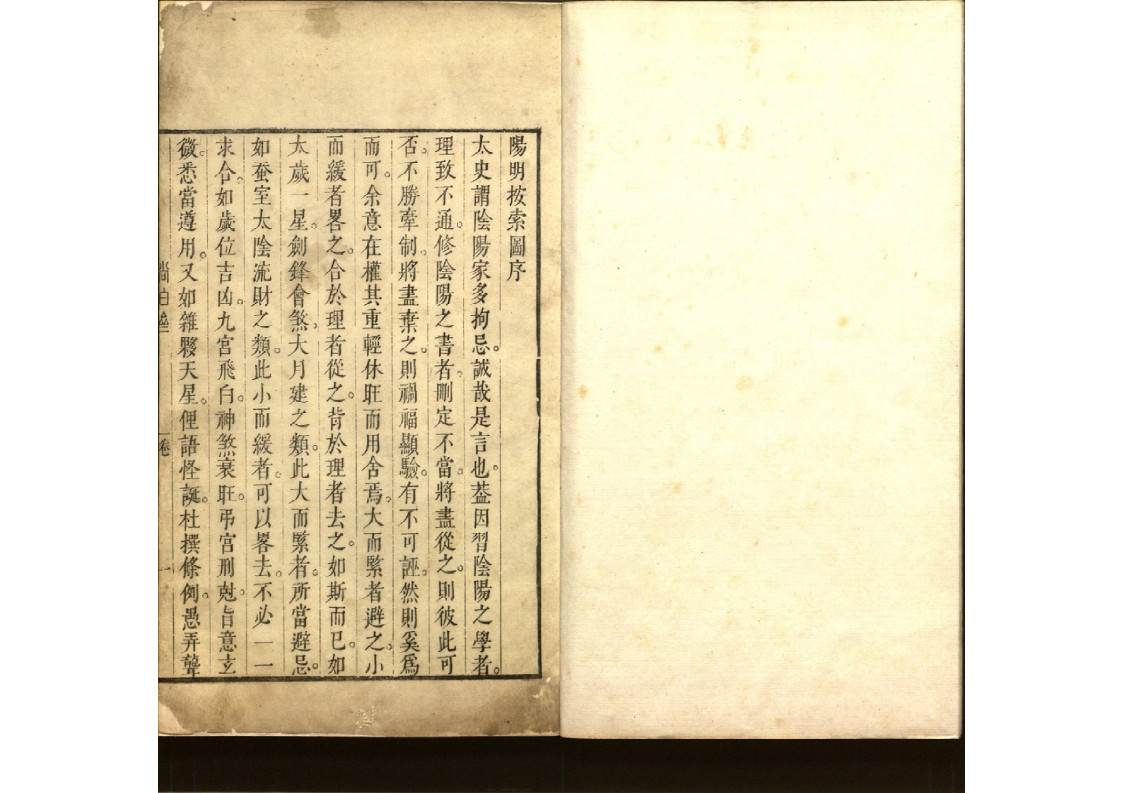 陽明按索圖序
太史謂陰陽家多拘忌。誠哉是言也。葢因習陰陽之學者。
理致不通。修陰陽之書者。刪定不當。將盡從之。則彼此可
否。不勝牽制。將盡棄之。則禍福顯驗。有不可誣。然則奚爲
而可。余意在權其重輕休旺而用舍焉。大而緊者避之。小
而緩者畧之。合於理者從之。背於理者去之。如斯而已。如
太歲一星。劍鋒會煞。大月建之類。此大而緊者。所當避忌。
如蚕室太陰流財之類。此小而緩者。可以畧去。不必一一
求合。如歲位吉凶。九宮飛白。神煞衰旺。弔宮刑尅。旨意玄
微。悉當遵用。又如雜殿天星。俚語怪誕。杜撰條例。愚弄聾
卷
一